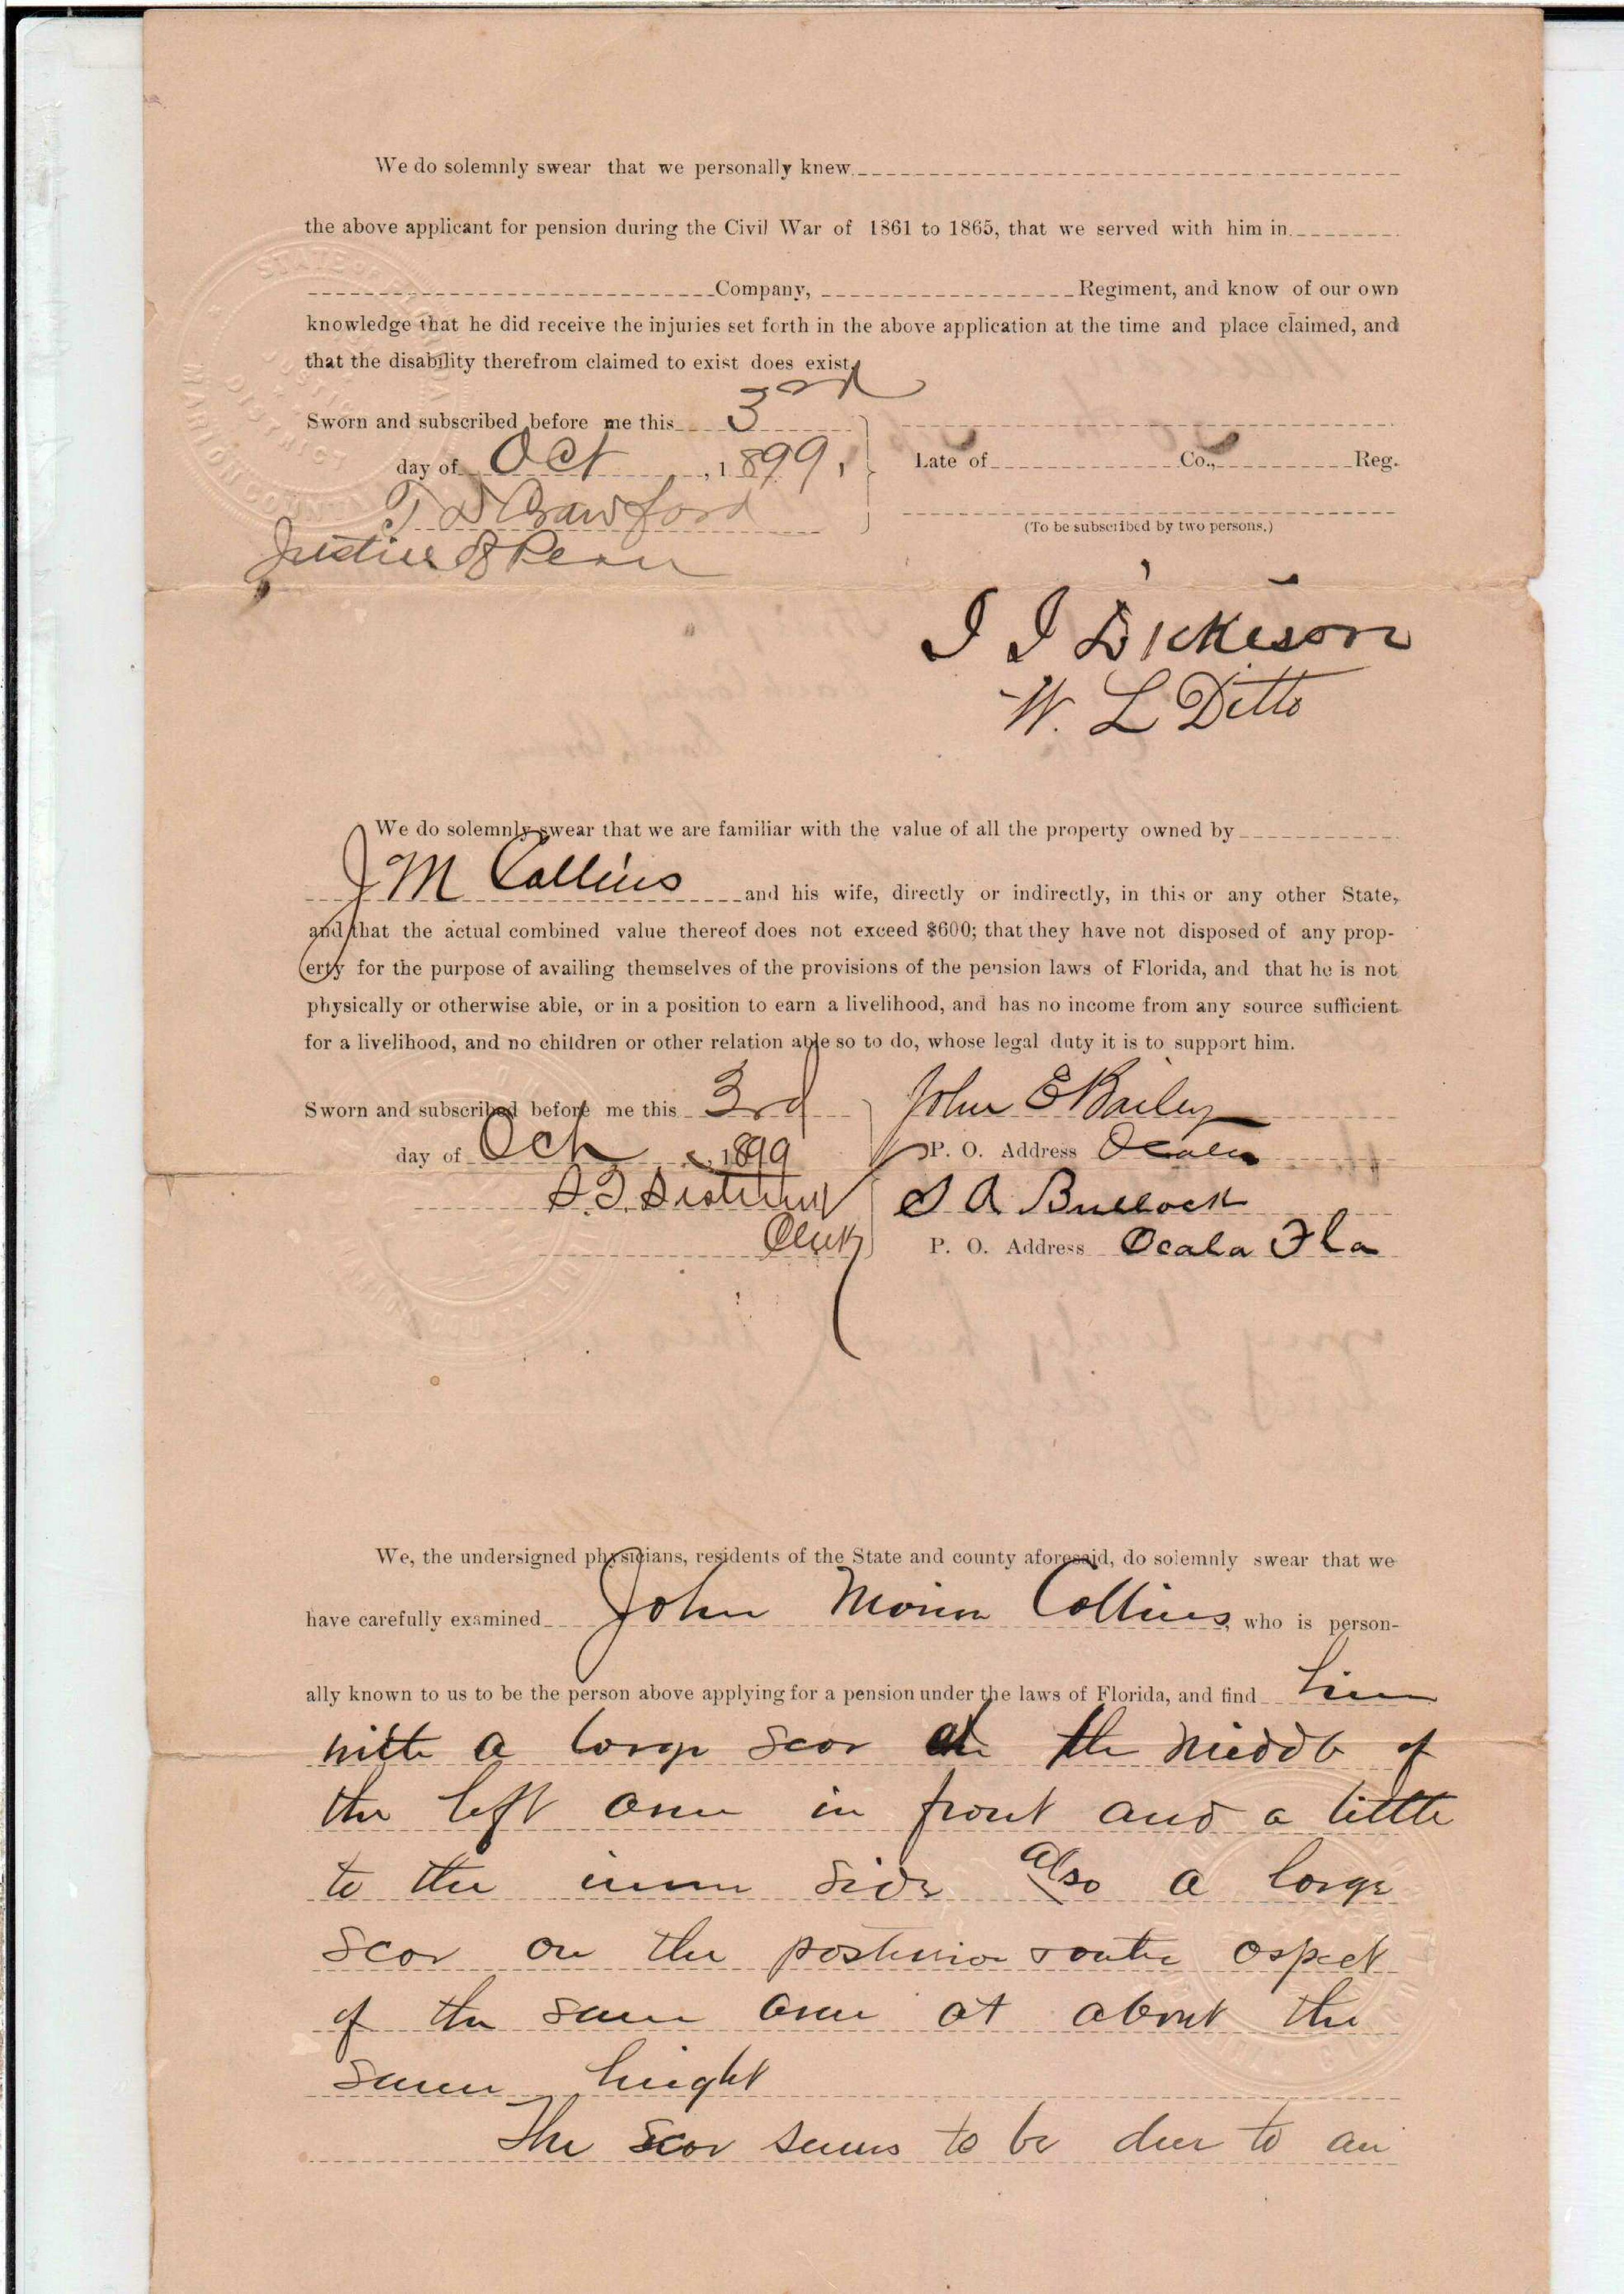 We do solemnly swear that we personally knew
the above applicant for pension during the Civil War of 1861 to 1865, that we served with him in
Company, Regiment, and know of our own
knowledge that he did receive the injuries set forth in the above application at the time and place claimed, and
that the disability therefrom claimed to exist does exist.
Sworn and subscribed before me this 3rd
day of Oct, 1899,
Late of Co., Reg.
T D Crawford
(To be subscribed by two persons.)
Justice of Peace
J J Dickison
W. L Ditto
We do solemnly swear that we are familiar with the value of all the property owned by
J M Collins and his wife, directly or indirectly, in this or any other State,
and that the actual combined value thereof does not exceed $600; that they have not disposed of any prop-
erty for the purpose of availing themselves of the provisions of the pension laws of Florida, and that he is not
physically or otherwise able, or in a position to earn a livelihood, and has no income from any source sufficient
for a livelihood, and no children or other relation able so to do, whose legal duty it is to support him.
Sworn and subscribed before me this 3rd
day of Oct, 1899
Clerk
John E Bailey
P. O. Address Ocala
S A Bullock
P. O. Address Ocala Fla
We, the undersigned physicians, residents of the State and county aforesaid, do solemnly swear that we
have carefully examined John Collins, who is person-
ally known to us to be the person above applying for a pension under the laws of Florida, and find him
with a large scar at the middle of
the left arm in front and a little
to the inner side also a large
scar on the posterior aspect
of the same arm at about the
same height
The scar seems to be due to an
STATE OF
DISTRICT
MARION COUNTY